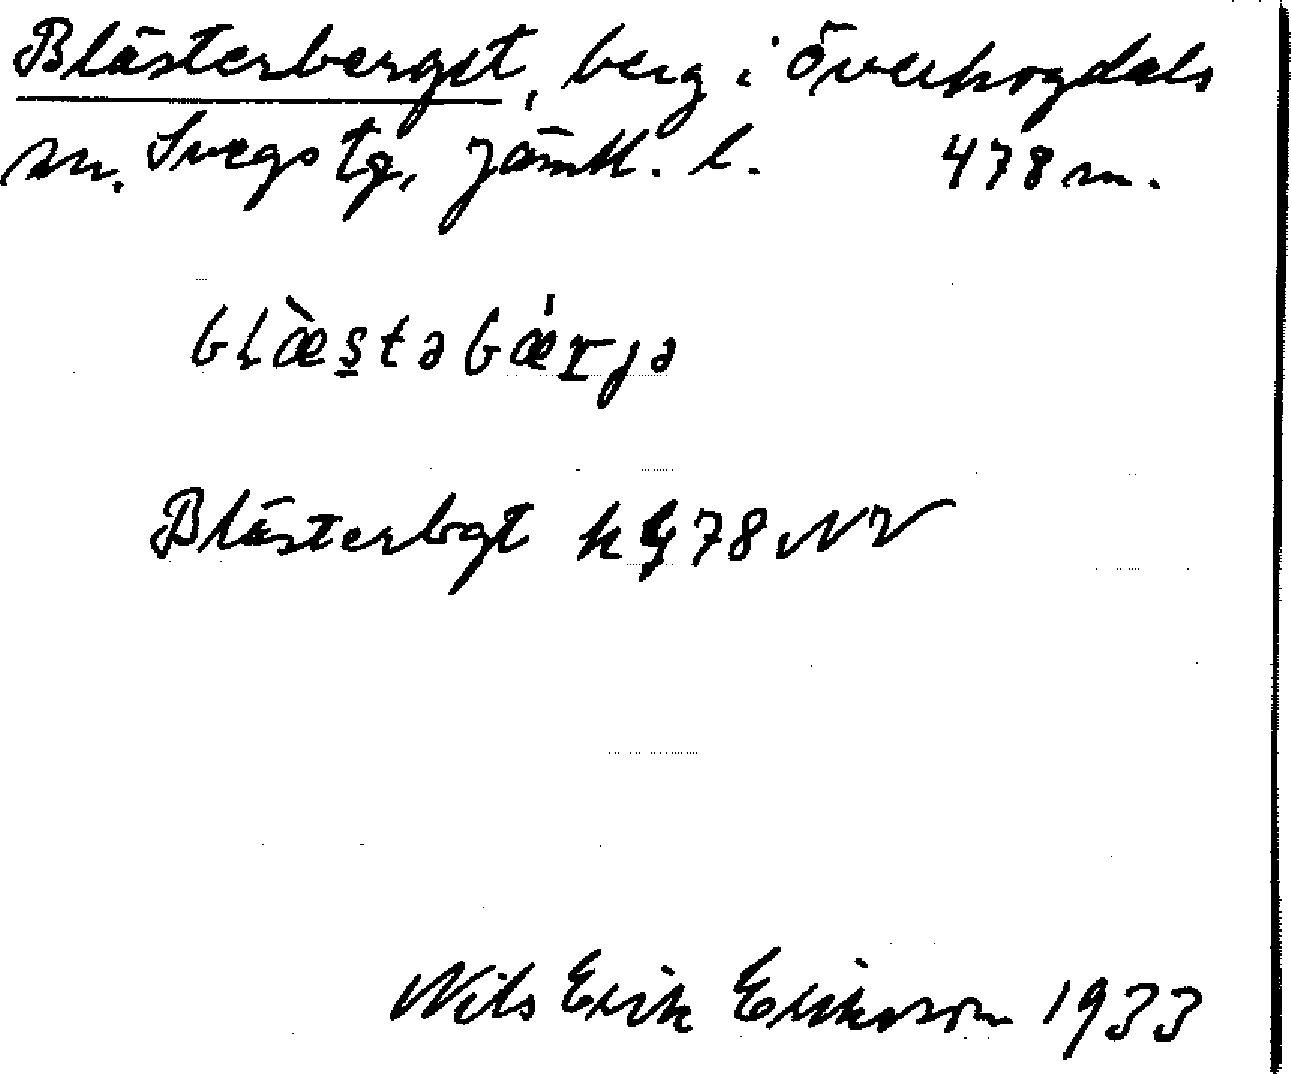 Blästerberget, berg i Överhogdals
sn. Svegs tg, Jämtl. l. 478 m.
blæ̀stəbǽrjə
Blästerbgt k 478 NV
Nils Erik Eriksson 1933